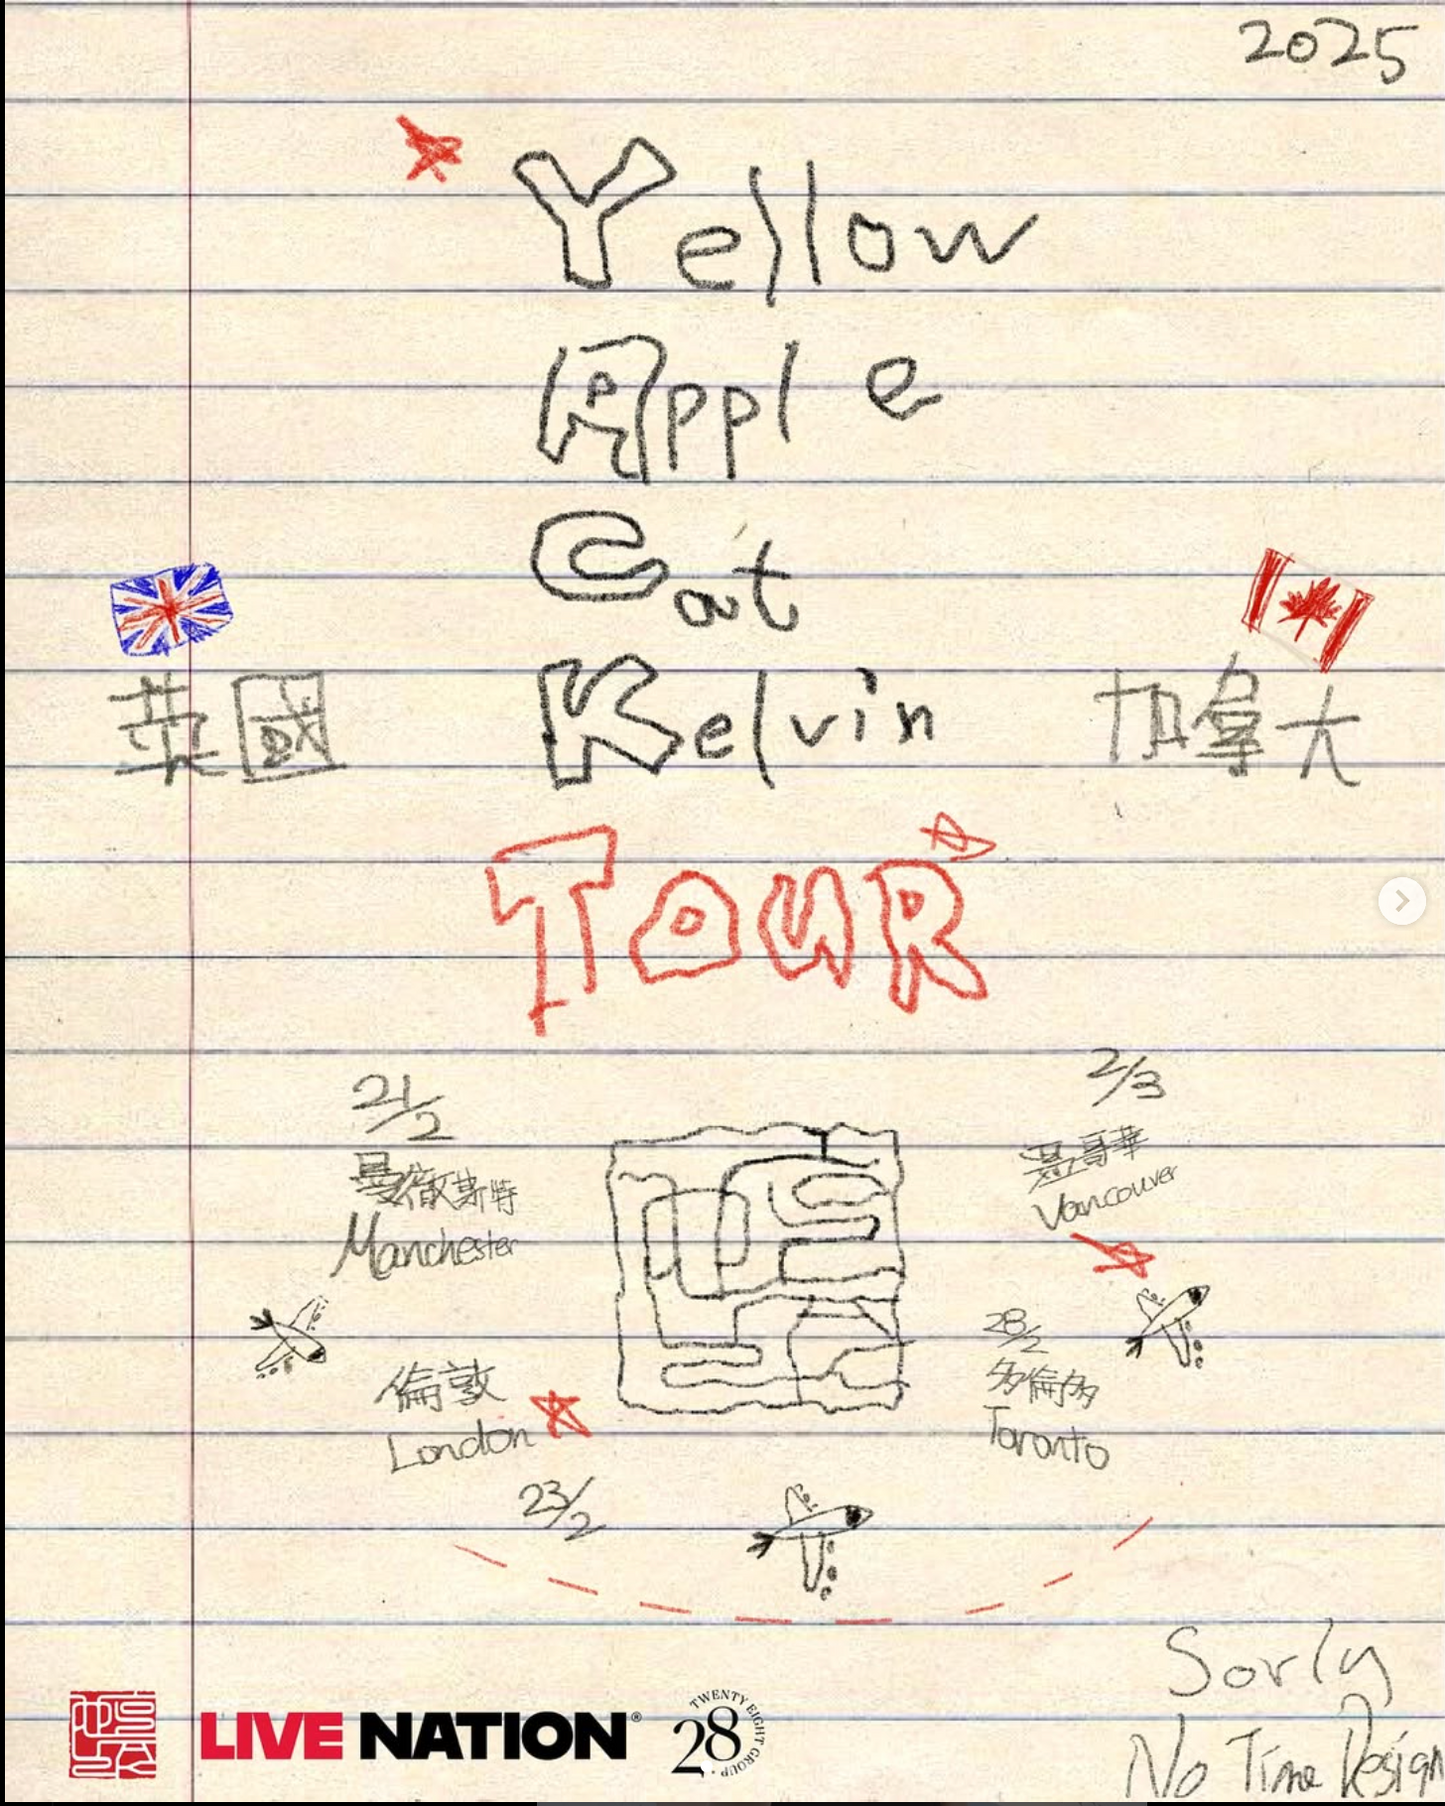 2025
Yellow
Apple
Cat
Kelvin
英國
加拿大
TOUR
21/2
曼徹斯特
Manchester
倫敦
London
23/2
2/3
溫哥華
Vancouver
28/2
多倫多
Toronto
Sorly
No Time Design
LIVE NATION®
28
TWENTY EIGHT GROUP